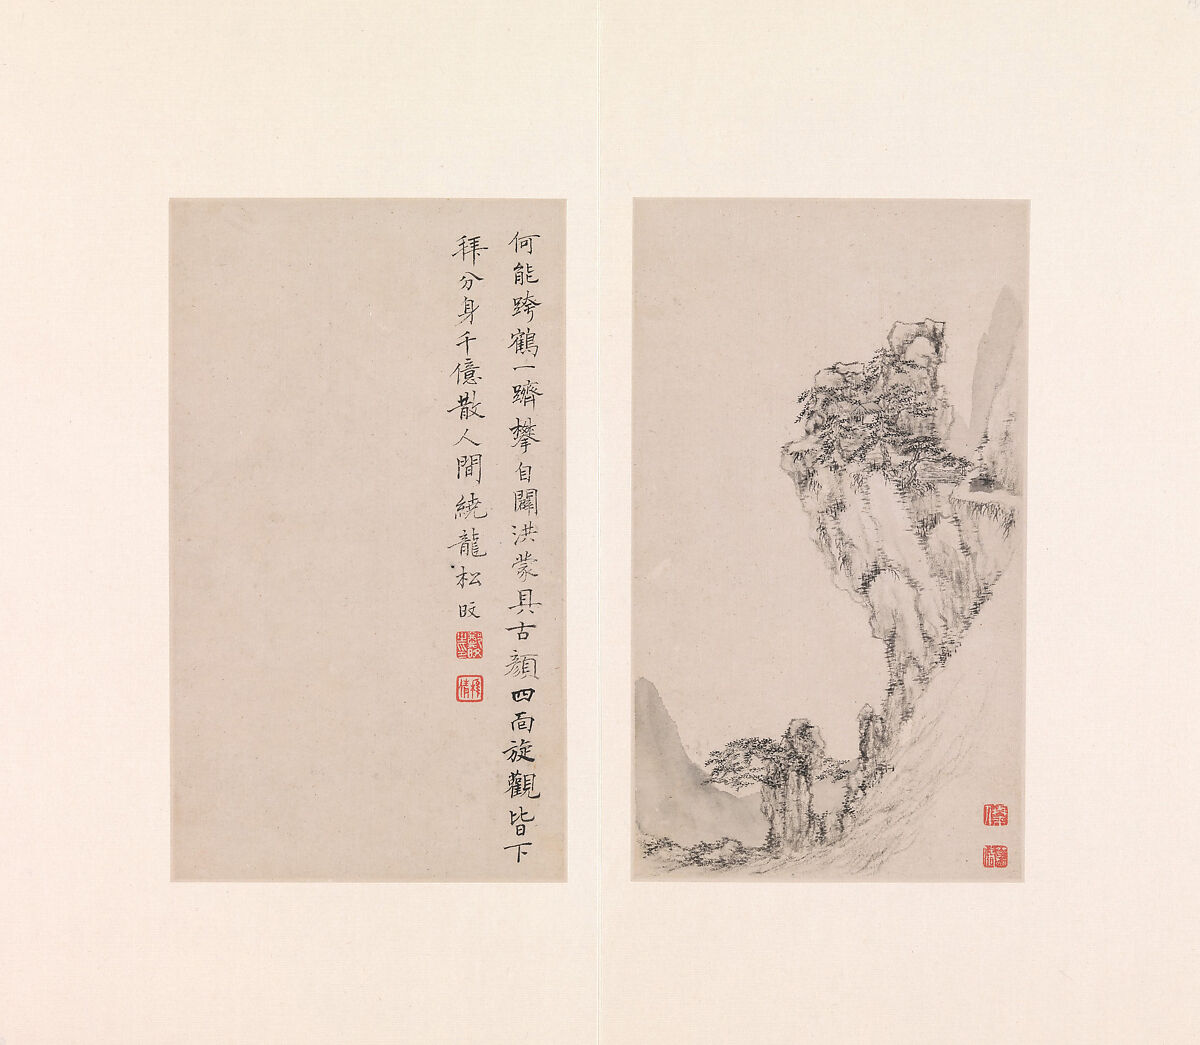 何能跨鶴一躋攀自闢洪蒙具古顔四面旋觀皆下
拜分身千億散人間繞龍松旼